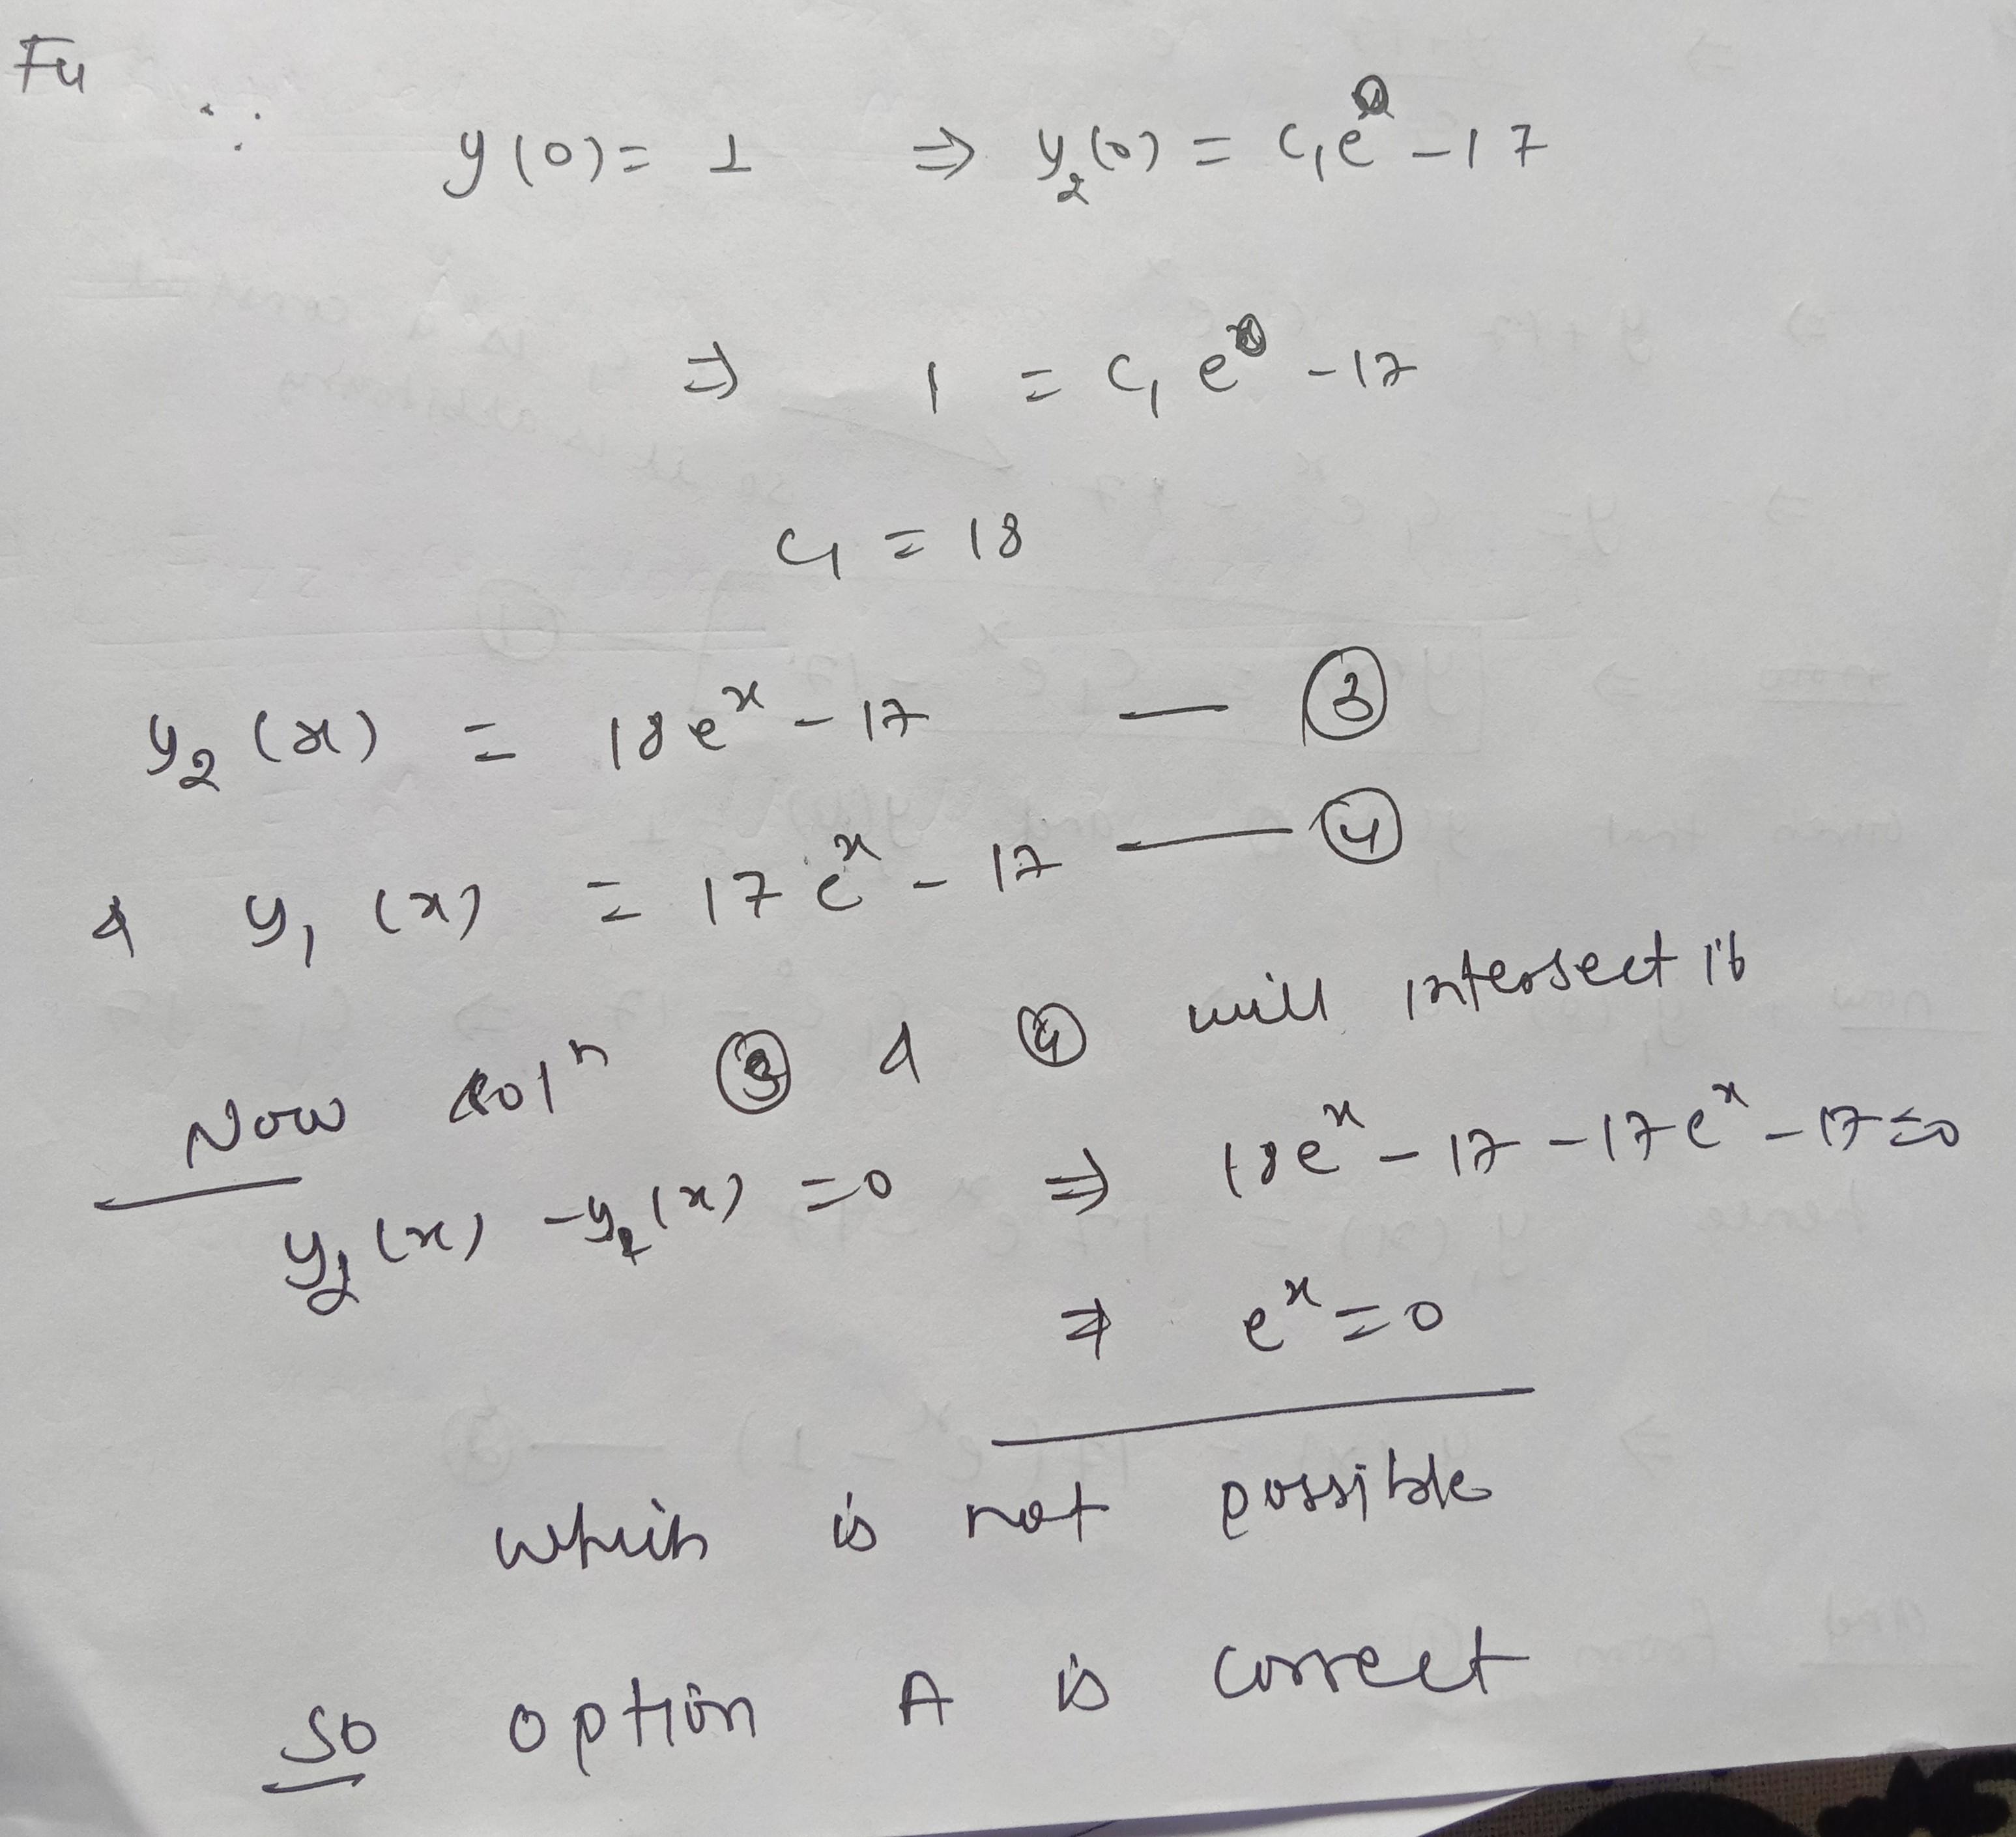 Fu
∵ y(0) = 1 ⇒ y₂(0) = C₁e⁰ - 17
⇒ 1 = C₁ e⁰ - 17
C₁ = 18
y₂(x) = 18eˣ - 17 — ③
& y₁(x) = 17eˣ - 17 — ④
Now solⁿ ③ & ④ will intersect if
y₂(x) - y₁(x) = 0 ⇒ 18eˣ - 17 - 17eˣ - 17 = 0
⇒ eˣ = 0
which is not possible
So option A is correct